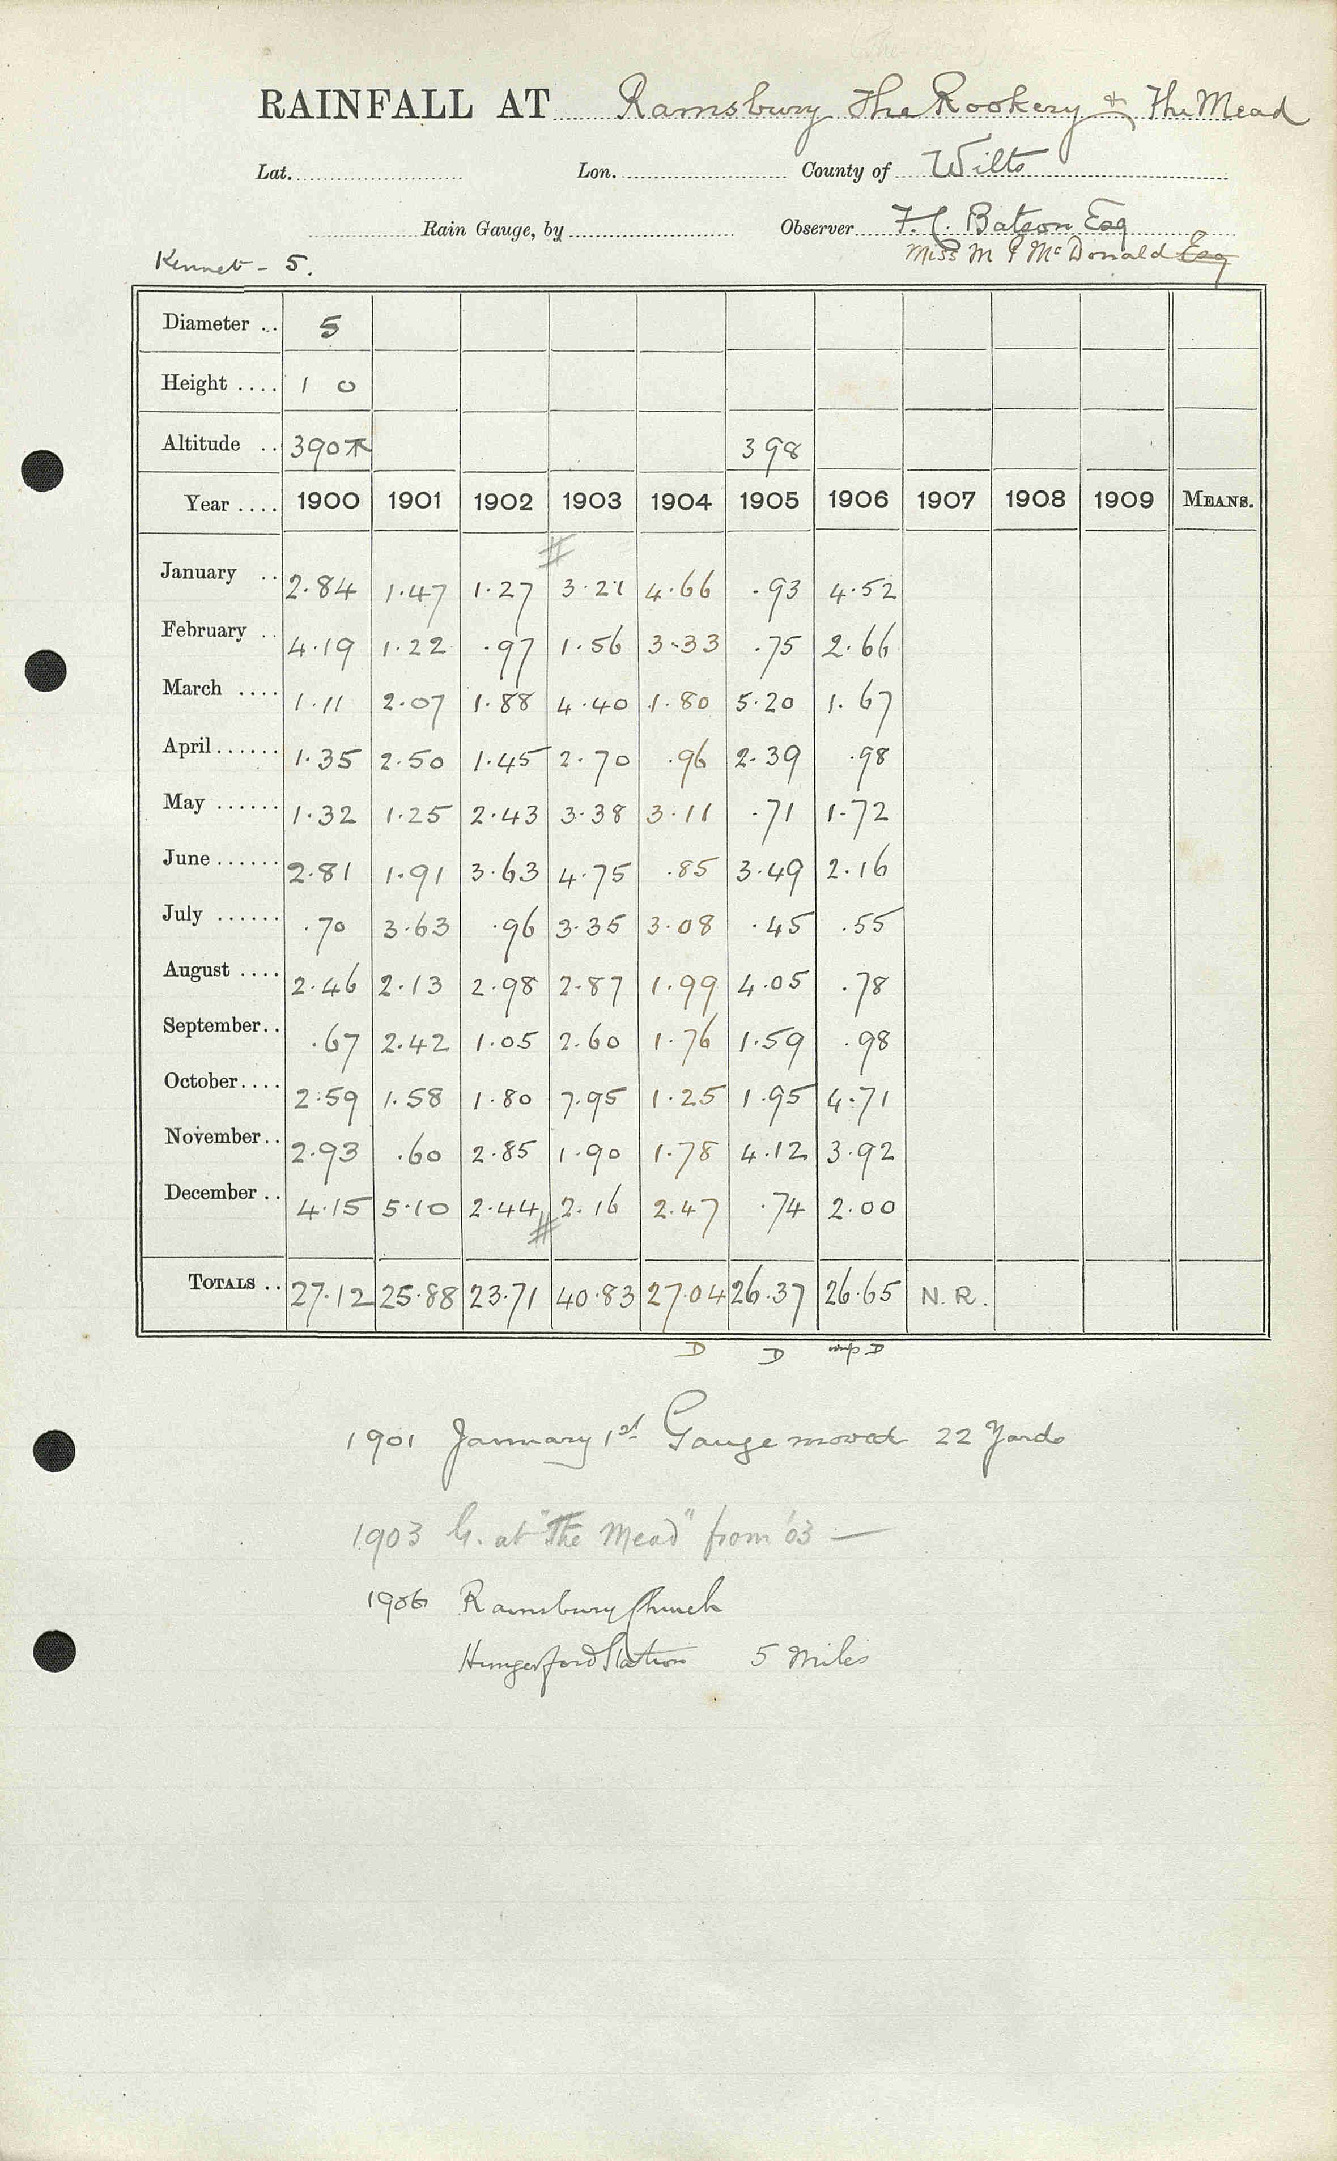 RAINFALL AT Ramsbury The Rookery & The Mead
Lat. Lon. County of Wilts
Rain Gauge, by Observer F. C. Batson Esq
Kennet - 5. Miss M F McDonald Esq
Diameter .. 5
Height .... 1 0
Altitude .. 390 398
Year .... 1900 1901 1902 1903 1904 1905 1906 1907 1908 1909 MEANS.
January .. 2.84 1.47 1.27 3.21 4.66 .93 4.52
February .. 4.19 1.22 .97 1.56 3.33 .75 2.66
March .... 1.11 2.07 1.88 4.40 1.80 5.20 1.67
April...... 1.35 2.50 1.45 2.70 .96 2.39 .98
May ...... 1.32 1.25 2.43 3.38 3.11 .71 1.72
June...... 2.81 1.91 3.63 4.75 .85 3.49 2.16
July ...... .70 3.63 .96 3.35 3.08 .45 .55
August .... 2.46 2.13 2.98 2.87 1.99 4.05 .78
September.. .67 2.42 1.05 2.60 1.76 1.59 .98
October.... 2.59 1.58 1.80 7.95 1.25 1.95 4.71
November.. 2.93 .60 2.85 1.90 1.78 4.12 3.92
December .. 4.15 5.10 2.44 2.16 2.47 .74 2.00
TOTALS .. 27.12 25.88 23.71 40.83 27.04 26.37 26.65 N.R.
D D D
1901 January 1st Gauge moved 22 Yards
1903 G. at "The Mead" from '03 —
1906 Ramsbury Church
Hungerford Station 5 Miles